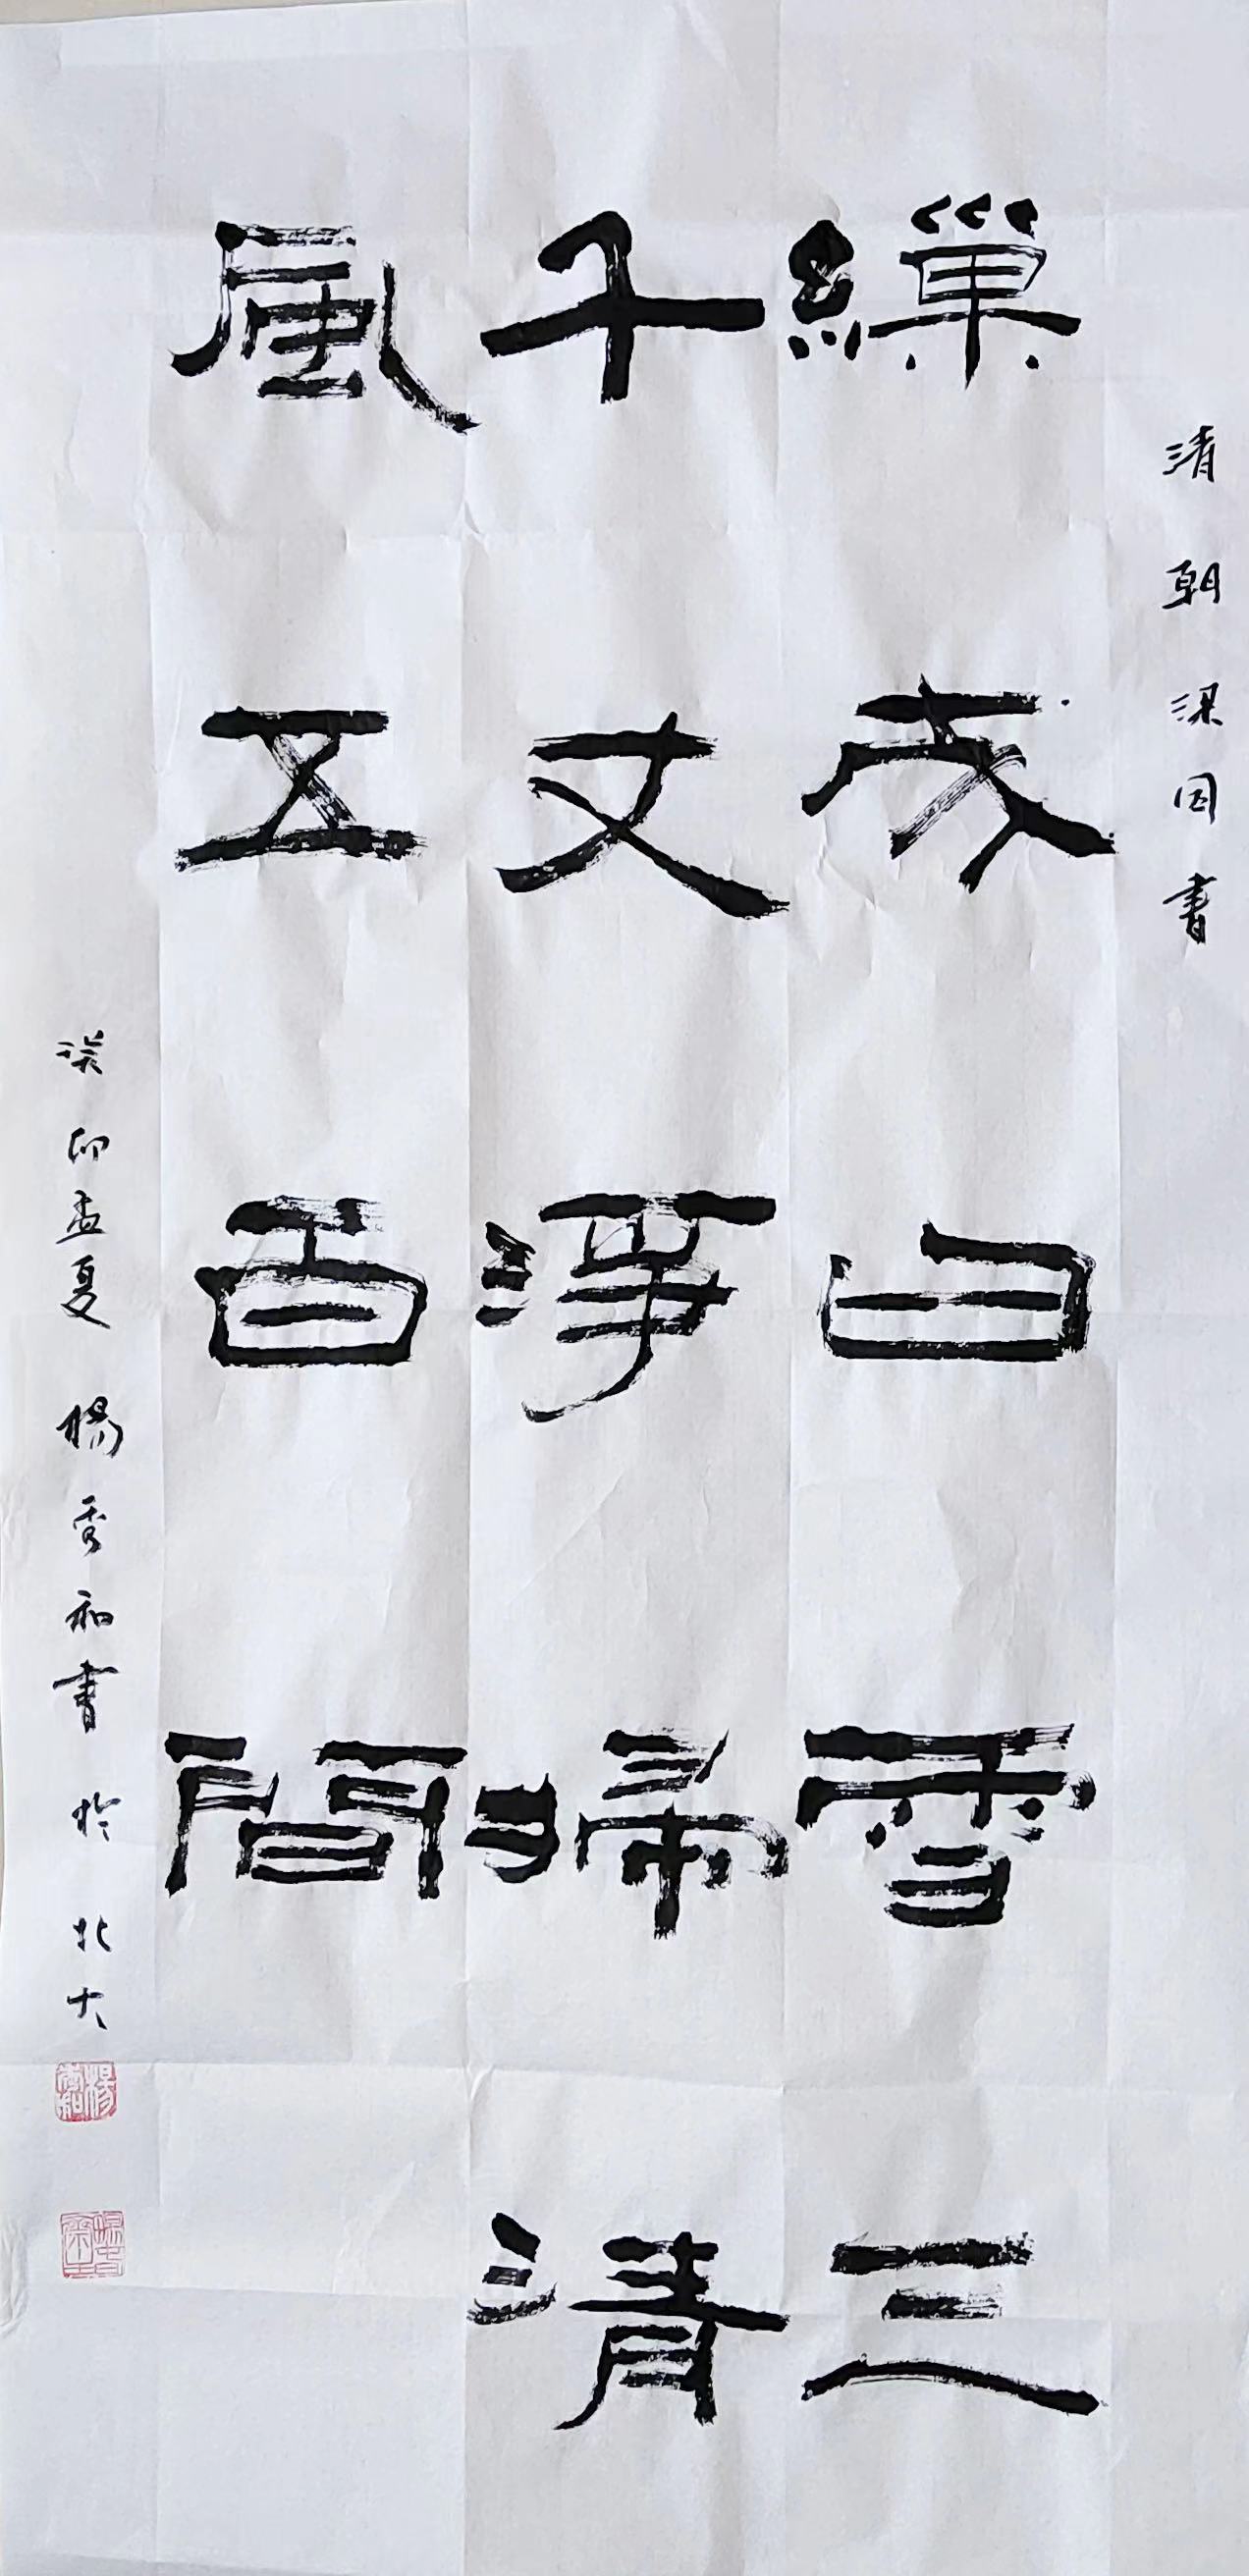 清朝梁同書
繅成白雪三
千丈淨掃清
風五百間
癸卯孟夏 楊秀和書於北大
楊秀和